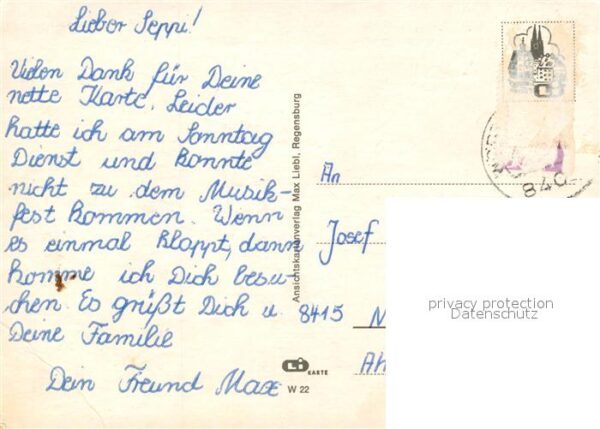 Lieber Seppi!
Vielen Dank für Deine
nette Karte. Leider
hatte ich am Sonntag
Dienst und konnte
nicht zu dem Musik-
fest kommen. Wenn
es einmal klappt, dann
komme ich Dich besu-
chen. Es grüßt Dich u.
Deine Familie
Dein Freund Max
Ansichtskartenverlag Max Liebl, Regensburg
Li KARTE
W 22
840
An
Josef
8415 N
Ah
privacy protection
Datenschutz